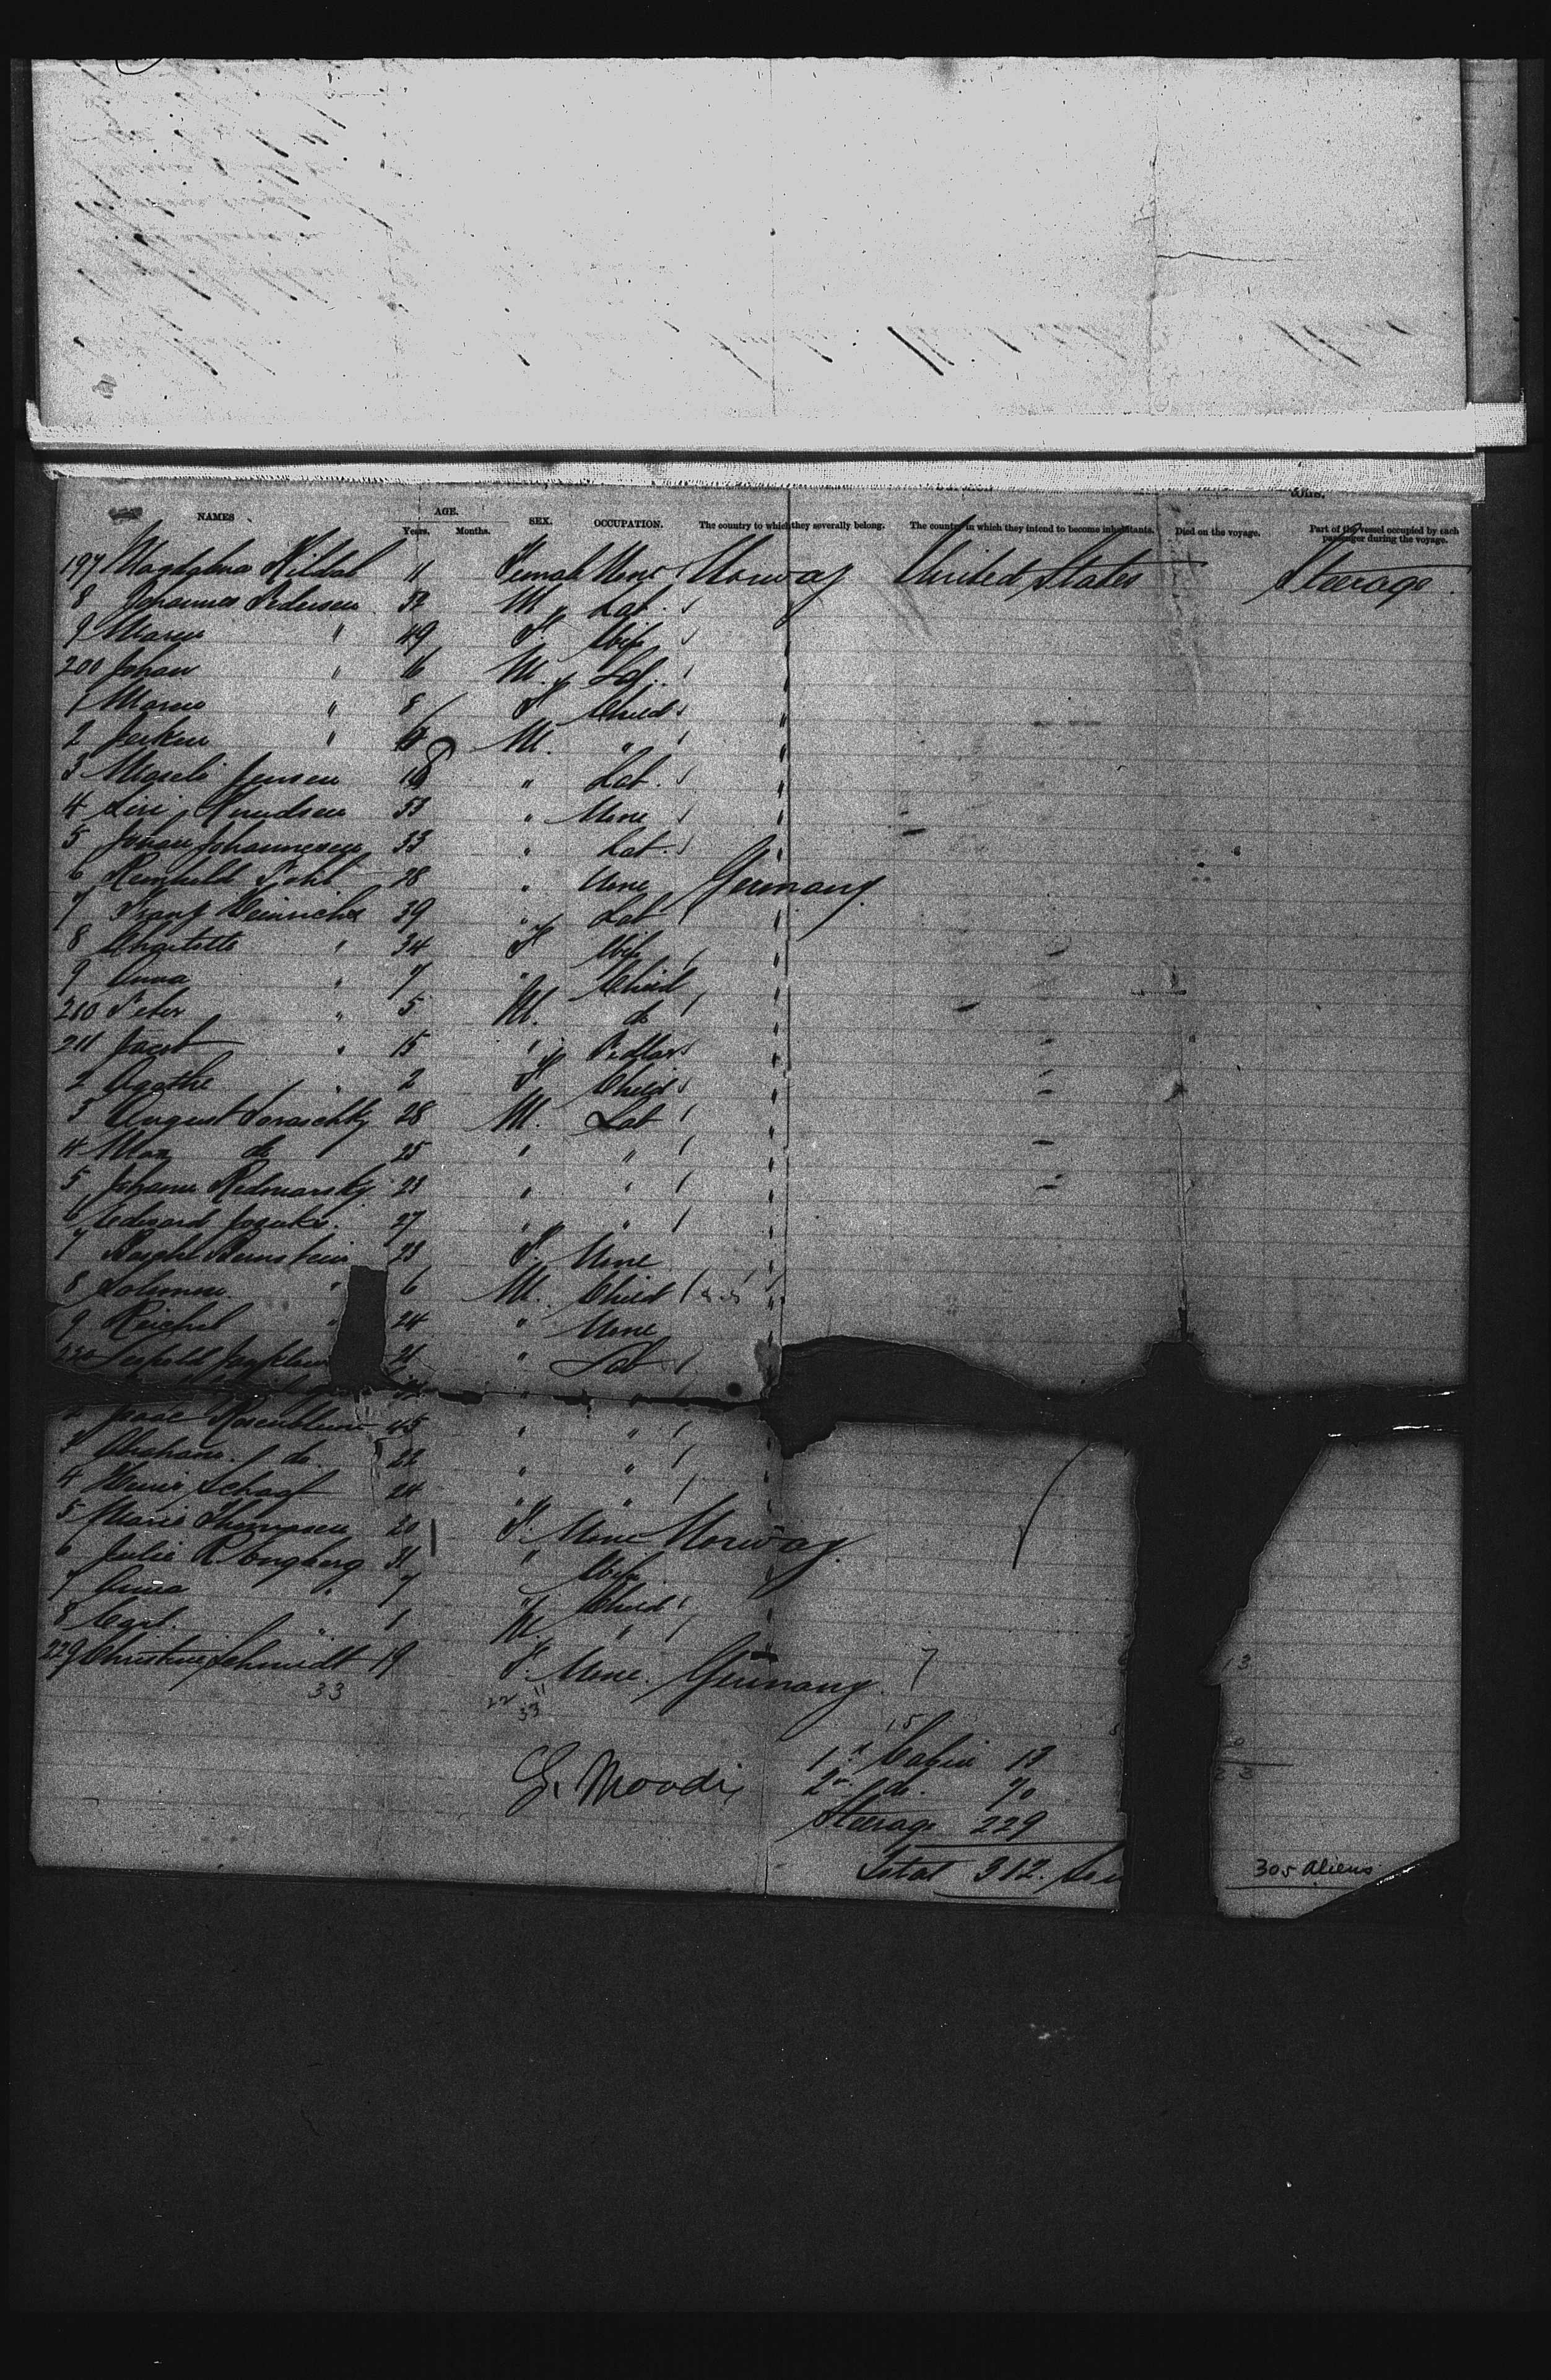 NAMES AGE. SEX. OCCUPATION. The country to which they severally belong. The country in which they intend to become inhabitants. Died on the voyage. Part of the vessel occupied by each passenger during the voyage.
Years. Months.
197 Magdalena Hildal 11 Female None Norway United States Steerage
8 Johannes Pedersen 52 M. Lab.
9 Maren " 49 F. Wife
200 Johan " 16 M. Lab.
1 Maren " 8 F Child
2 " M. "
3 Jensen 18 " Lab.
4 Knudsen 53 " None
5 Johan Johannesen 33 " Lab.
6 28 " None Germany
7 Franz Heinrichs 39 " Lab
8 Charlotte " 34 F Wife
9 Anna " 7 " Child
210 Peter " 5 M. do
211 Jacob " 15 " Pedlar
2 Agathe " 2 F Child
3 August 28 M. Lab
4 Max do 25 " "
5 Johann 23 " "
6 Edward 27 " "
7 Bernstein 23 F. None
8 Solomon " 6 M. Child
9 Reichel " 24 " None
220 Leopold 21 " Lab
2 Isaac Rosenblum 45 " "
3 Abraham do. 22 " "
4 Schaaf 24 " "
5 Marie Thomasen 20 F. None Norway
6 Julie R. 31 " Wife
7 Anna " 7 " Child
8 " 1 M. "
229 Christine Schmidt 19 F. None. Germany. 7
33 22 11
33
13
15
1st Cabin 13
G. Moodie 2nd do. 70
Steerage 229
Total 312. 305 Aliens